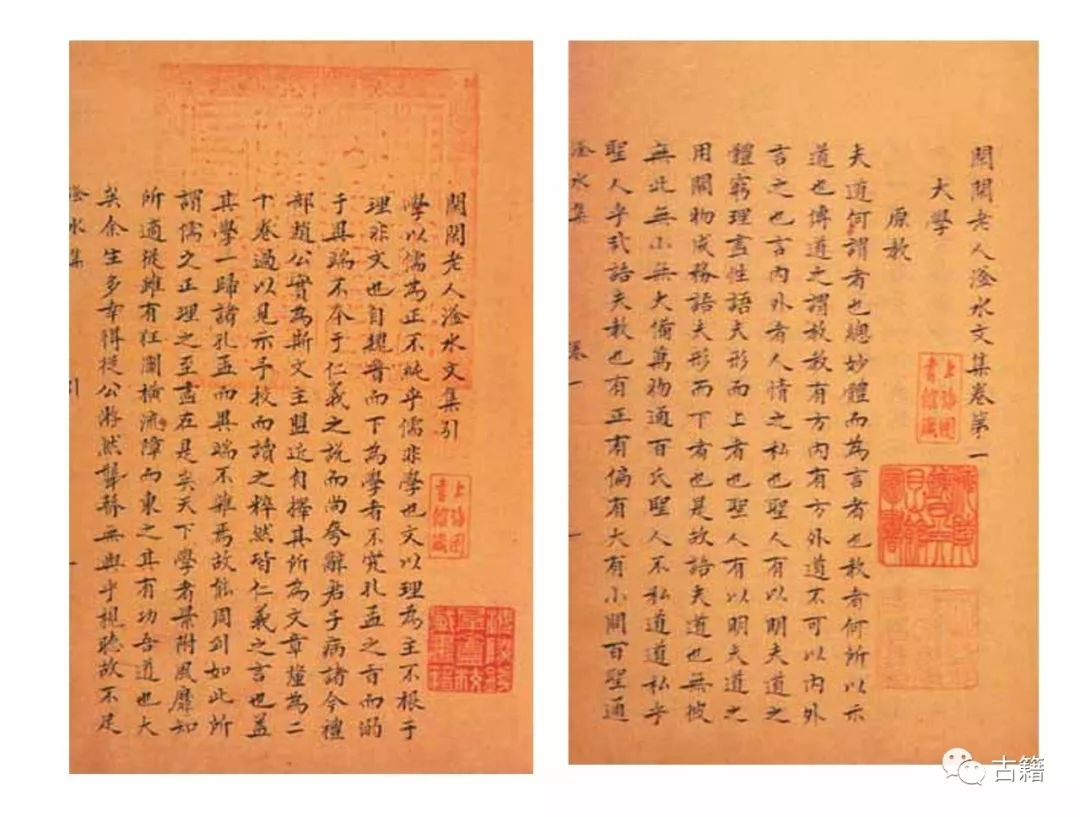 閑閑老人滏水文集引
學以儒為正不純乎儒非學也文以理為主不根于
理非文也自魏晉而下為學者不究孔孟之旨而溺
于異端不本于仁義之說而尚夸辭君子病諸今禮
部趙公實為斯文主盟近自擇其所為文章釐為二
十卷過以見示予校而讀之粹然皆仁義之言也蓋
其學一歸諸孔孟而異端不雜焉故能周到如此所
謂儒之正理之至盡在是矣天下學者景附風靡知
所適從雖有狂瀾橫流障而東之其有功吾道也大
矣余生多幸得從公游然聾瞽無與乎視聽故不足
滏水集 引 一
上海圖書館藏
閑閑老人滏水文集卷第一
大學
原教
夫道何謂者也總妙體而為言者也教者何所以示
道也傳道之謂教教有方內有方外道不可以內外
言之也言內外者人情之私也聖人有以明夫道之
體窮理盡性語夫形而上者也聖人有以明夫道之
用開物成務語夫形而下者也是故語夫道也無彼
無此無小無大備萬物通百氏聖人不私道道私乎
聖人乎哉語夫教也有正有偏有大有小開百聖通
滏水集 卷一 一
上海圖書館藏
古籍